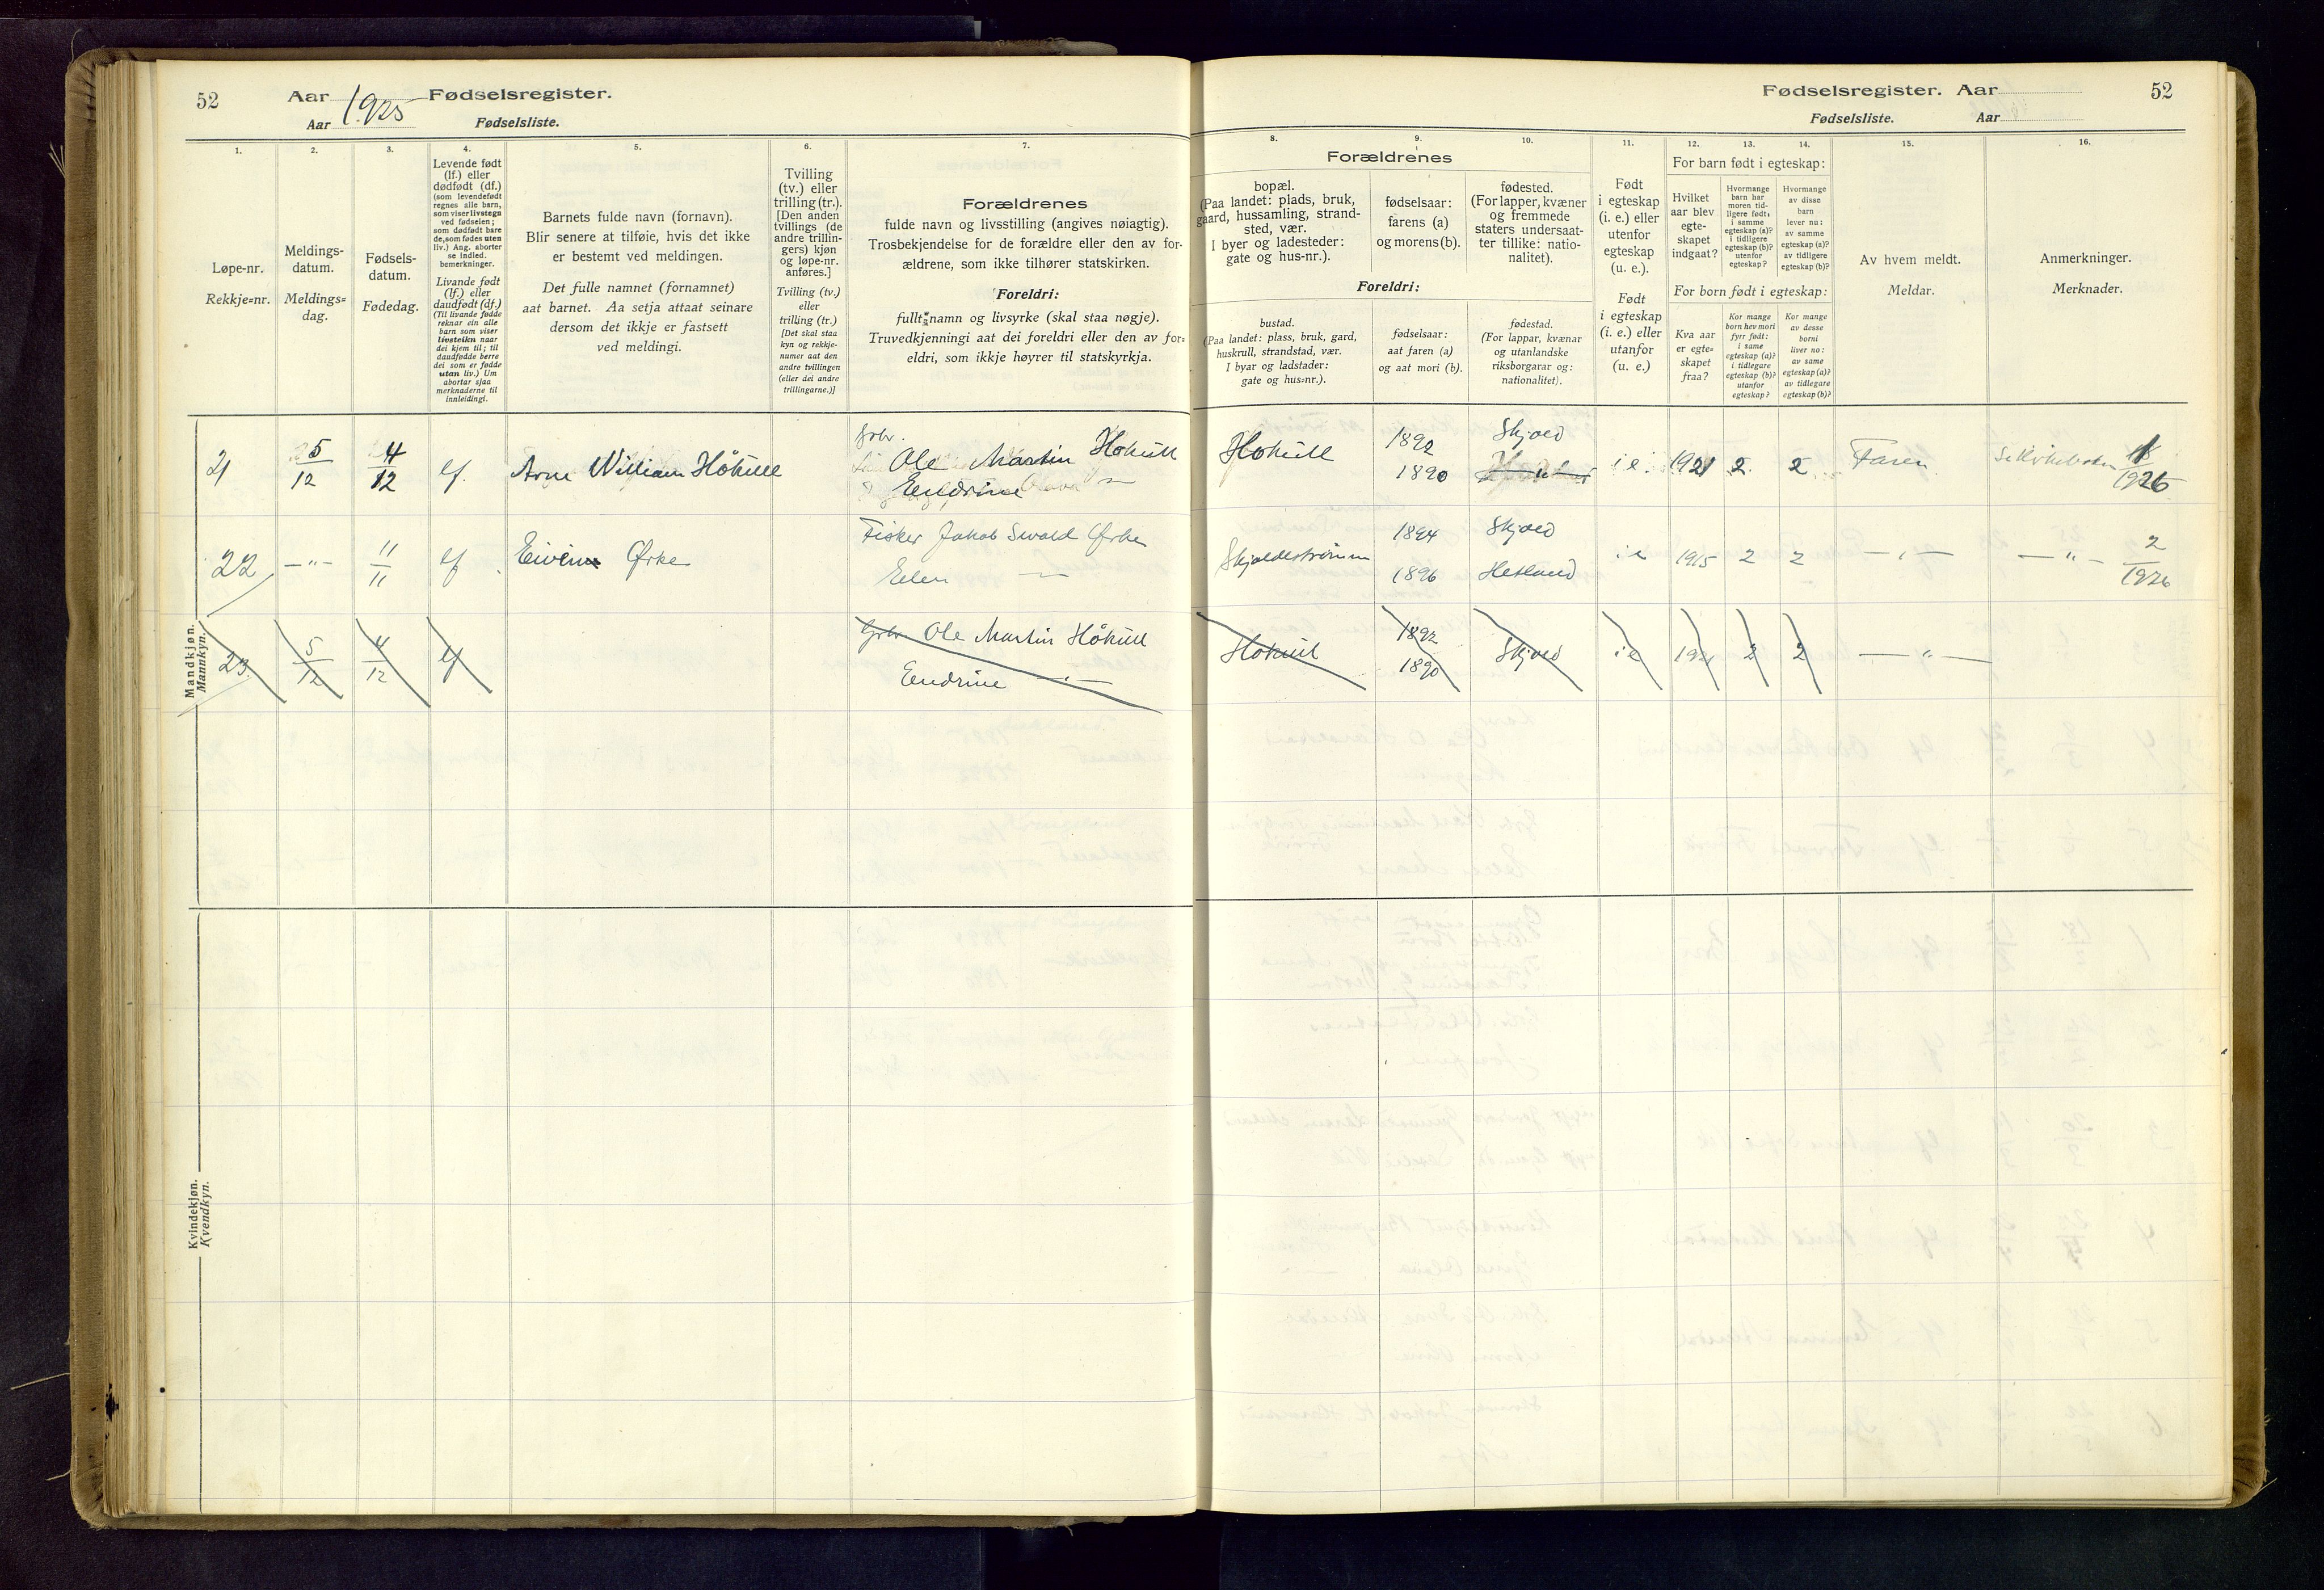 52
Aar 1925 Fødselsregister.
Aar
Fødselsliste.
1.
2.
3.
4.
5.
6.
7.
Løpe-nr.
Rekkje=nr.
Meldings-
datum.
Meldings=
dag.
Fødsels-
datum.
Fødedag.
Levende født
(lf.) eller
dødfødt (df.)
(som levendefødt
regnes alle barn,
som viser livstegn
ved fødselen;
som dødfødt bare
de, som fødes uten
liv.) Ang. aborter
se indled.
bemerkninger.
Livande født
(lf.) eller
daudfødt (df.)
(Til livande fødde
reknar ein alle
barn som viser
livsteikn naar
dei kjem til; til
daudfødde berre
dei som er fødde
utan liv.) Um
abortar sjaa
merknaderne til
innleidingi.
Barnets fulde navn (fornavn).
Blir senere at tilføie, hvis det ikke
er bestemt ved meldingen.
Det fulle namnet (fornamnet)
aat barnet. Aa setja attaat seinare
dersom det ikkje er fastsett
ved meldingi.
Tvilling
(tv.) eller
trilling (tr.).
[Den anden
tvillings (de
andre trillin-
gers) kjøn
og løpe-nr.
anføres.]
Tvilling (tv.)
eller
trilling (tr.)
[Det skal staa
kyn og rekkje-
numer aat den
andre tvillingen
(eller dei andre
trillingarne.)]
Forældrenes
fulde navn og livsstilling (angives nøiagtig).
Trosbekjendelse for de forældre eller den av for-
ældrene, som ikke tilhører statskirken.
Foreldri:
fullt namn og livsyrke (skal staa nøgje).
Truvedkjenningi aat dei foreldri eller den av for=
eldri, som ikkje høyrer til statskyrkja.
Mandkjøn.
Mannkyn.
21
5/12
4/12
lf.
Arne William Håkull
Grbr.
Ole Martin Hokull
Eendrine
22
—"—
11/11
lf
Ørke
Fisker Jakob Ørke
Elen —
23.
5/12
4/12
lf
Grbr. Ole Martin Håkull
Eendrine —"—
Kvindekjøn.
Kvendkyn.
Fødselsregister. Aar
52
Fødselsliste. Aar
8.
9.
10.
11.
12.
13.
14.
15.
16.
Forældrenes
bopæl.
(Paa landet: plads, bruk,
gaard, hussamling, strand-
sted, vær.
I byer og ladesteder:
gate og hus-nr.).
fødselsaar:
farens (a)
og morens (b).
fødested.
(For lapper, kvæner
og fremmede
staters undersaat-
ter tillike: natio-
nalitet).
Foreldri:
bustad.
(Paa landet: plass, bruk, gard,
huskrull, strandstad, vær.
I byar og ladstader:
gate og hus=nr.).
fødselsaar:
aat faren (a)
og aat mori (b).
fødestad.
(For lappar, kvænar
og utanlandske
riksborgarar og:
nationalitet).
Født
i egteskap
(i. e.) eller
utenfor
egteskap
(u. e.).
Født
i egteskap
(i. e.) eller
utanfor
(u. e.)
For barn født i egteskap:
Hvilket
aar blev
egte-
skapet
indgaat?
Hvormange
barn har
moren tid-
ligere født:
i samme
egteskap (a)?
i tidligere
egteskap (b)?
utenfor
egteskap?
Hvormange
av disse
barn
lever nu:
av samme
egteskap (a)?
av tidligere
egteskap (b)?
For born født i egteskap:
Kva aar
er egte=
skapet
fraa?
Kor mange
born hev mori
fyrr født:
i same
egteskap (a)?
i tidlegare
egteskap (b)?
utanfor
egteskap?
Kor mange
av desse
borni
liver no:
av same
egteskap (a)?
av tidlegare
egteskap (b)?
Av hvem meldt.
Meldar.
Anmerkninger.
Merknader.
Hokull
1892
1890
Skjold
i e
1921
2
2
Faren
1926
Skjoldestrømm
1894
1896
Skjold
Hetland
i e
1915
2
2
—"—
—"—
2/1926
Hokull
1892
1890
Skjold
i e
1921
2
2
—"—